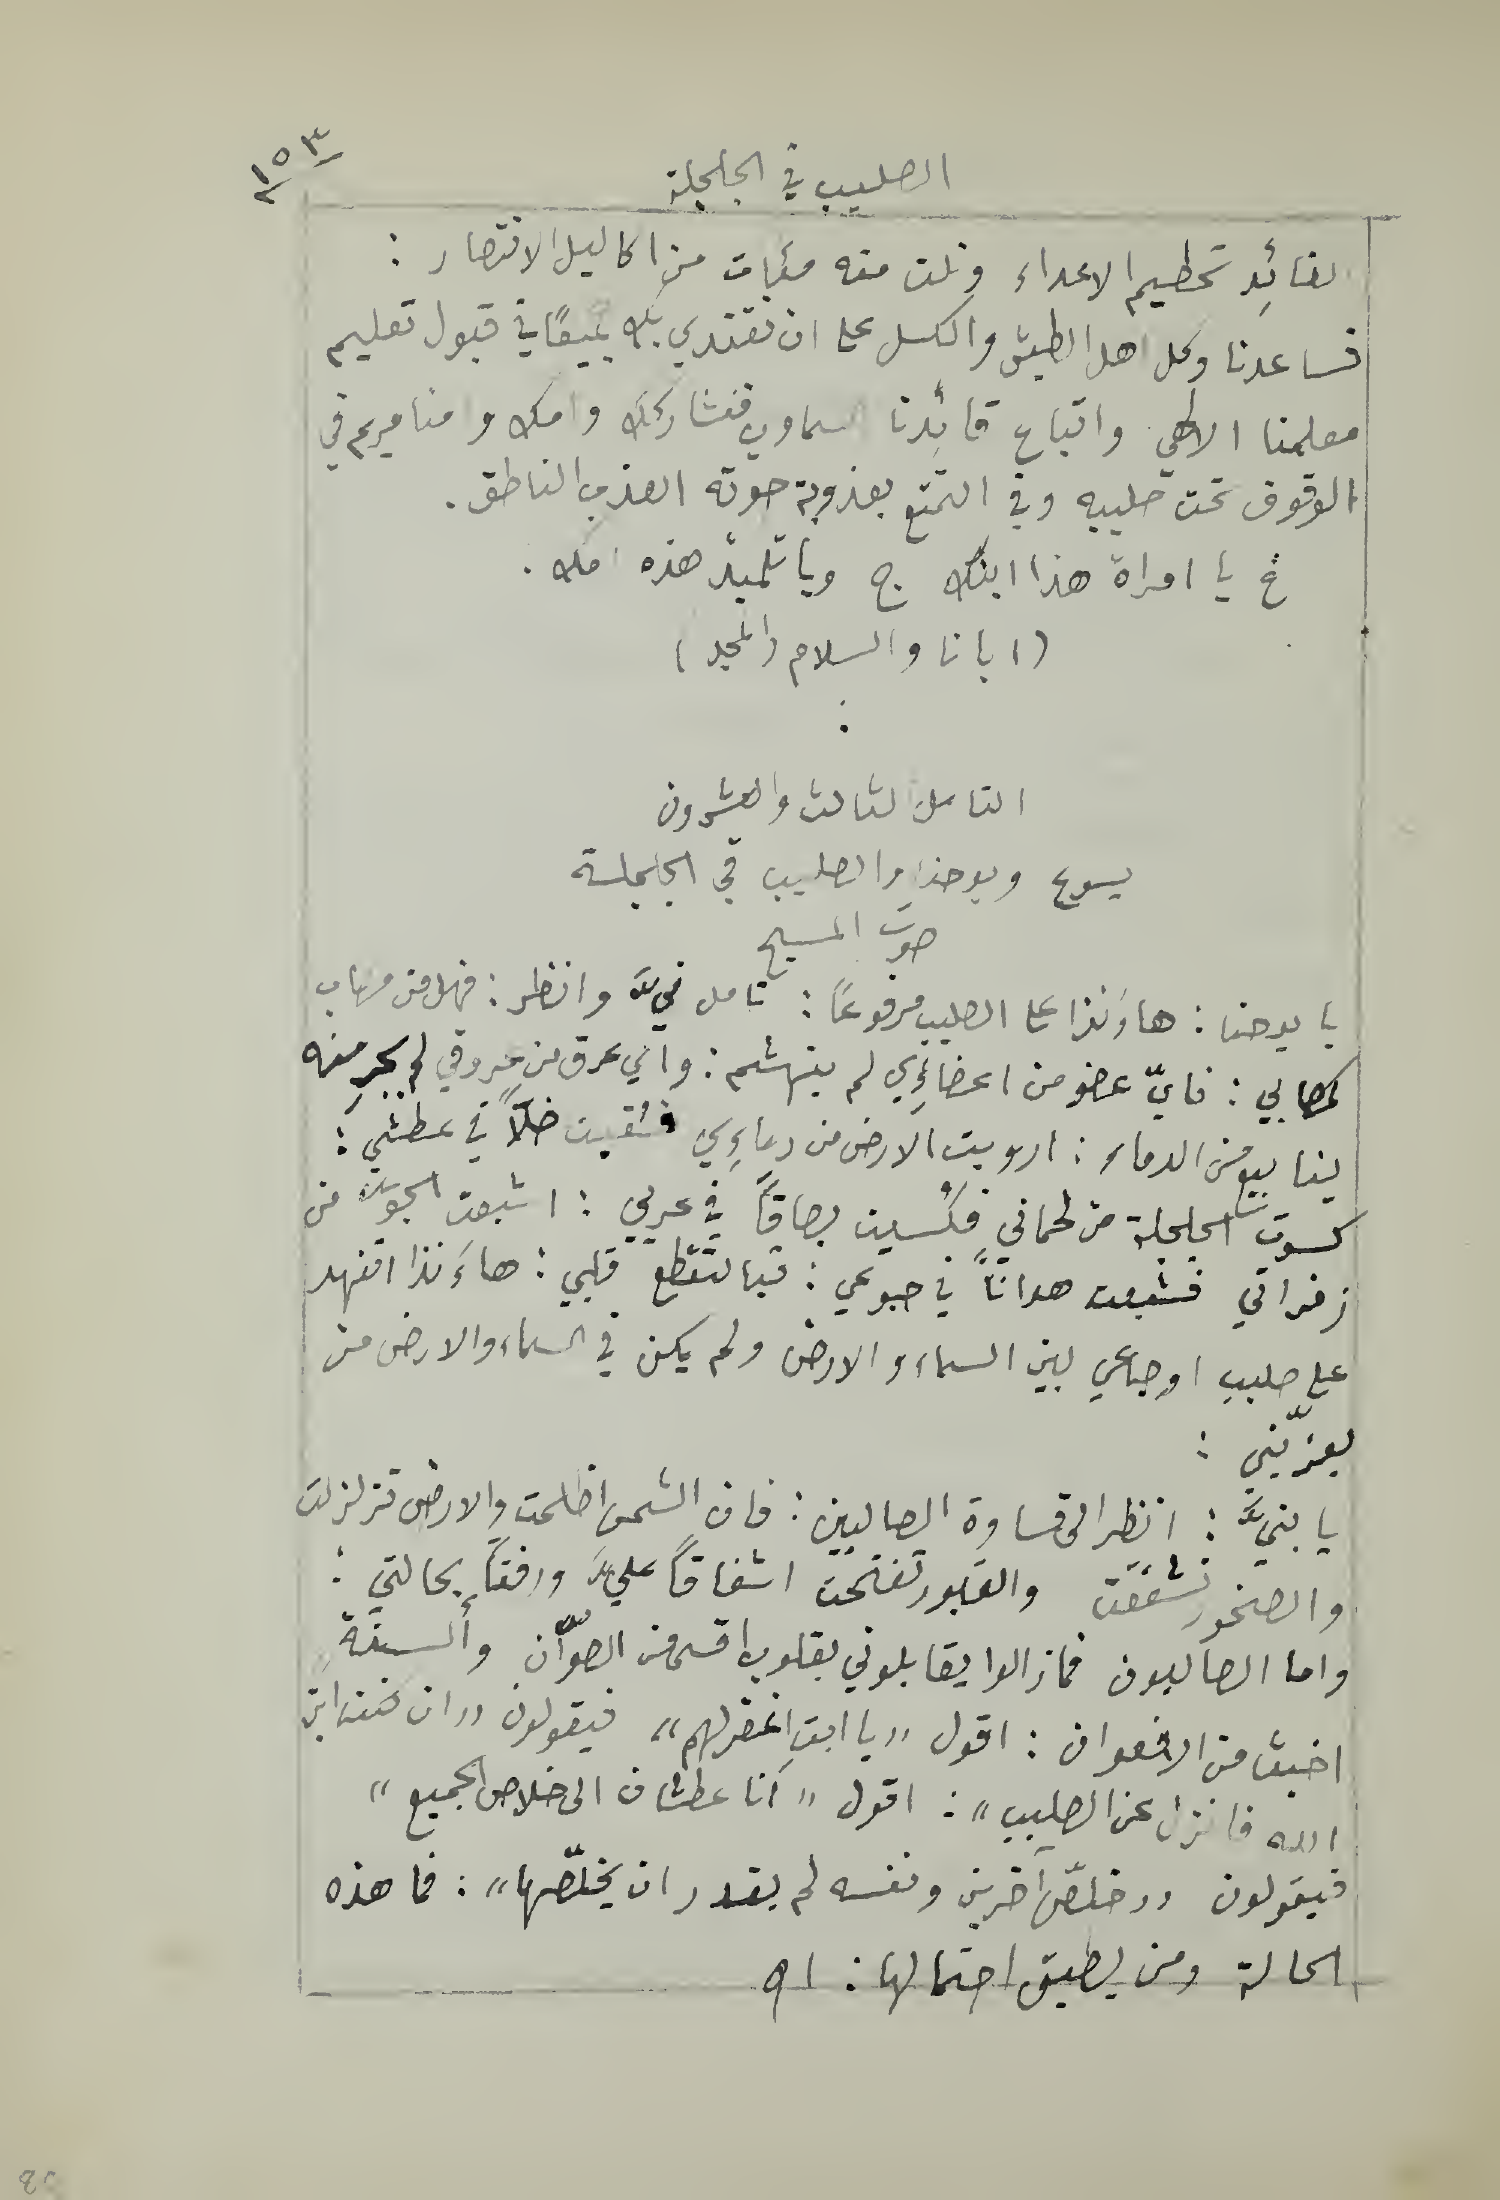 ١٥٣
الصليب في الجلجلة
لقائدِ تحطيم الاعداء ونلت منه مئات من اكاليل الانتصار :
فساعدنا وكل اهل الطيش والكسل على ان نقتدي بك جميعًا في قبول تعليم
معلمنا الالهي واتباع قائدنا السماوي فنشاركك وامك وامنا مريم في
الوقوف تحت صليبه وفي التمتع بعذوبة صوته العذب الناطق .
خ يا امراة هذا ابنك ج ويا تلميذ هذه امك .
( ابانا والسلام والمجد )
التامل الثالث والعشرون
يسوع ويوحنا والصليب في الجلجلة
صوت المسيح
يا يوحنا : هاءَنذا على الصليب مرفوعًا : تامل فيَّ وانظر : فهل من مصاب
كمصابي : فايّ عضو من اعضاءِي لم ينهشم : واي عرق من عروقي لم يجرِ منه
ينابيع من الدماء : ارويت الارض من دماءِي فسُقيت خلّاً في عطشي :
كسوت الجلجلة من لحماني فكُسيت بصاقاً في عريي : اشبعت الجوّ من
زفراتي فشبعت هواناً في جوعي : فيا لتقطع قلبي : هاءَنذا اتنهد
على صليب اوجاعي بين السماء والارض ولم يكن في السماء والارض من
يعزّيني :
يا بنيَّ : انظر الى قساوة الصالبين : فان الشمس اظلمت والارض تزلزلت
والصخور تشققت والقبور تفتحت اشفاقاً عليَّ ورفقاً بحالتي :
واما الصالبون فما زالوا يقابلوني بقلوب اقسى من الصوّان وألسنةٍ
اخبث من الافعوان : اقول « يا ابتِ اغفر لهم » فيقولون « ان كنت ابن
الله فانزل عن الصليب » : اقول « أنا عطشان الى خلاص الجميع »
فيقولون « خلّص آخرين ونفسه لم يقدر ان يخلّصها » : فما هذه
الحالة ومن يطيق احتمالها : اه